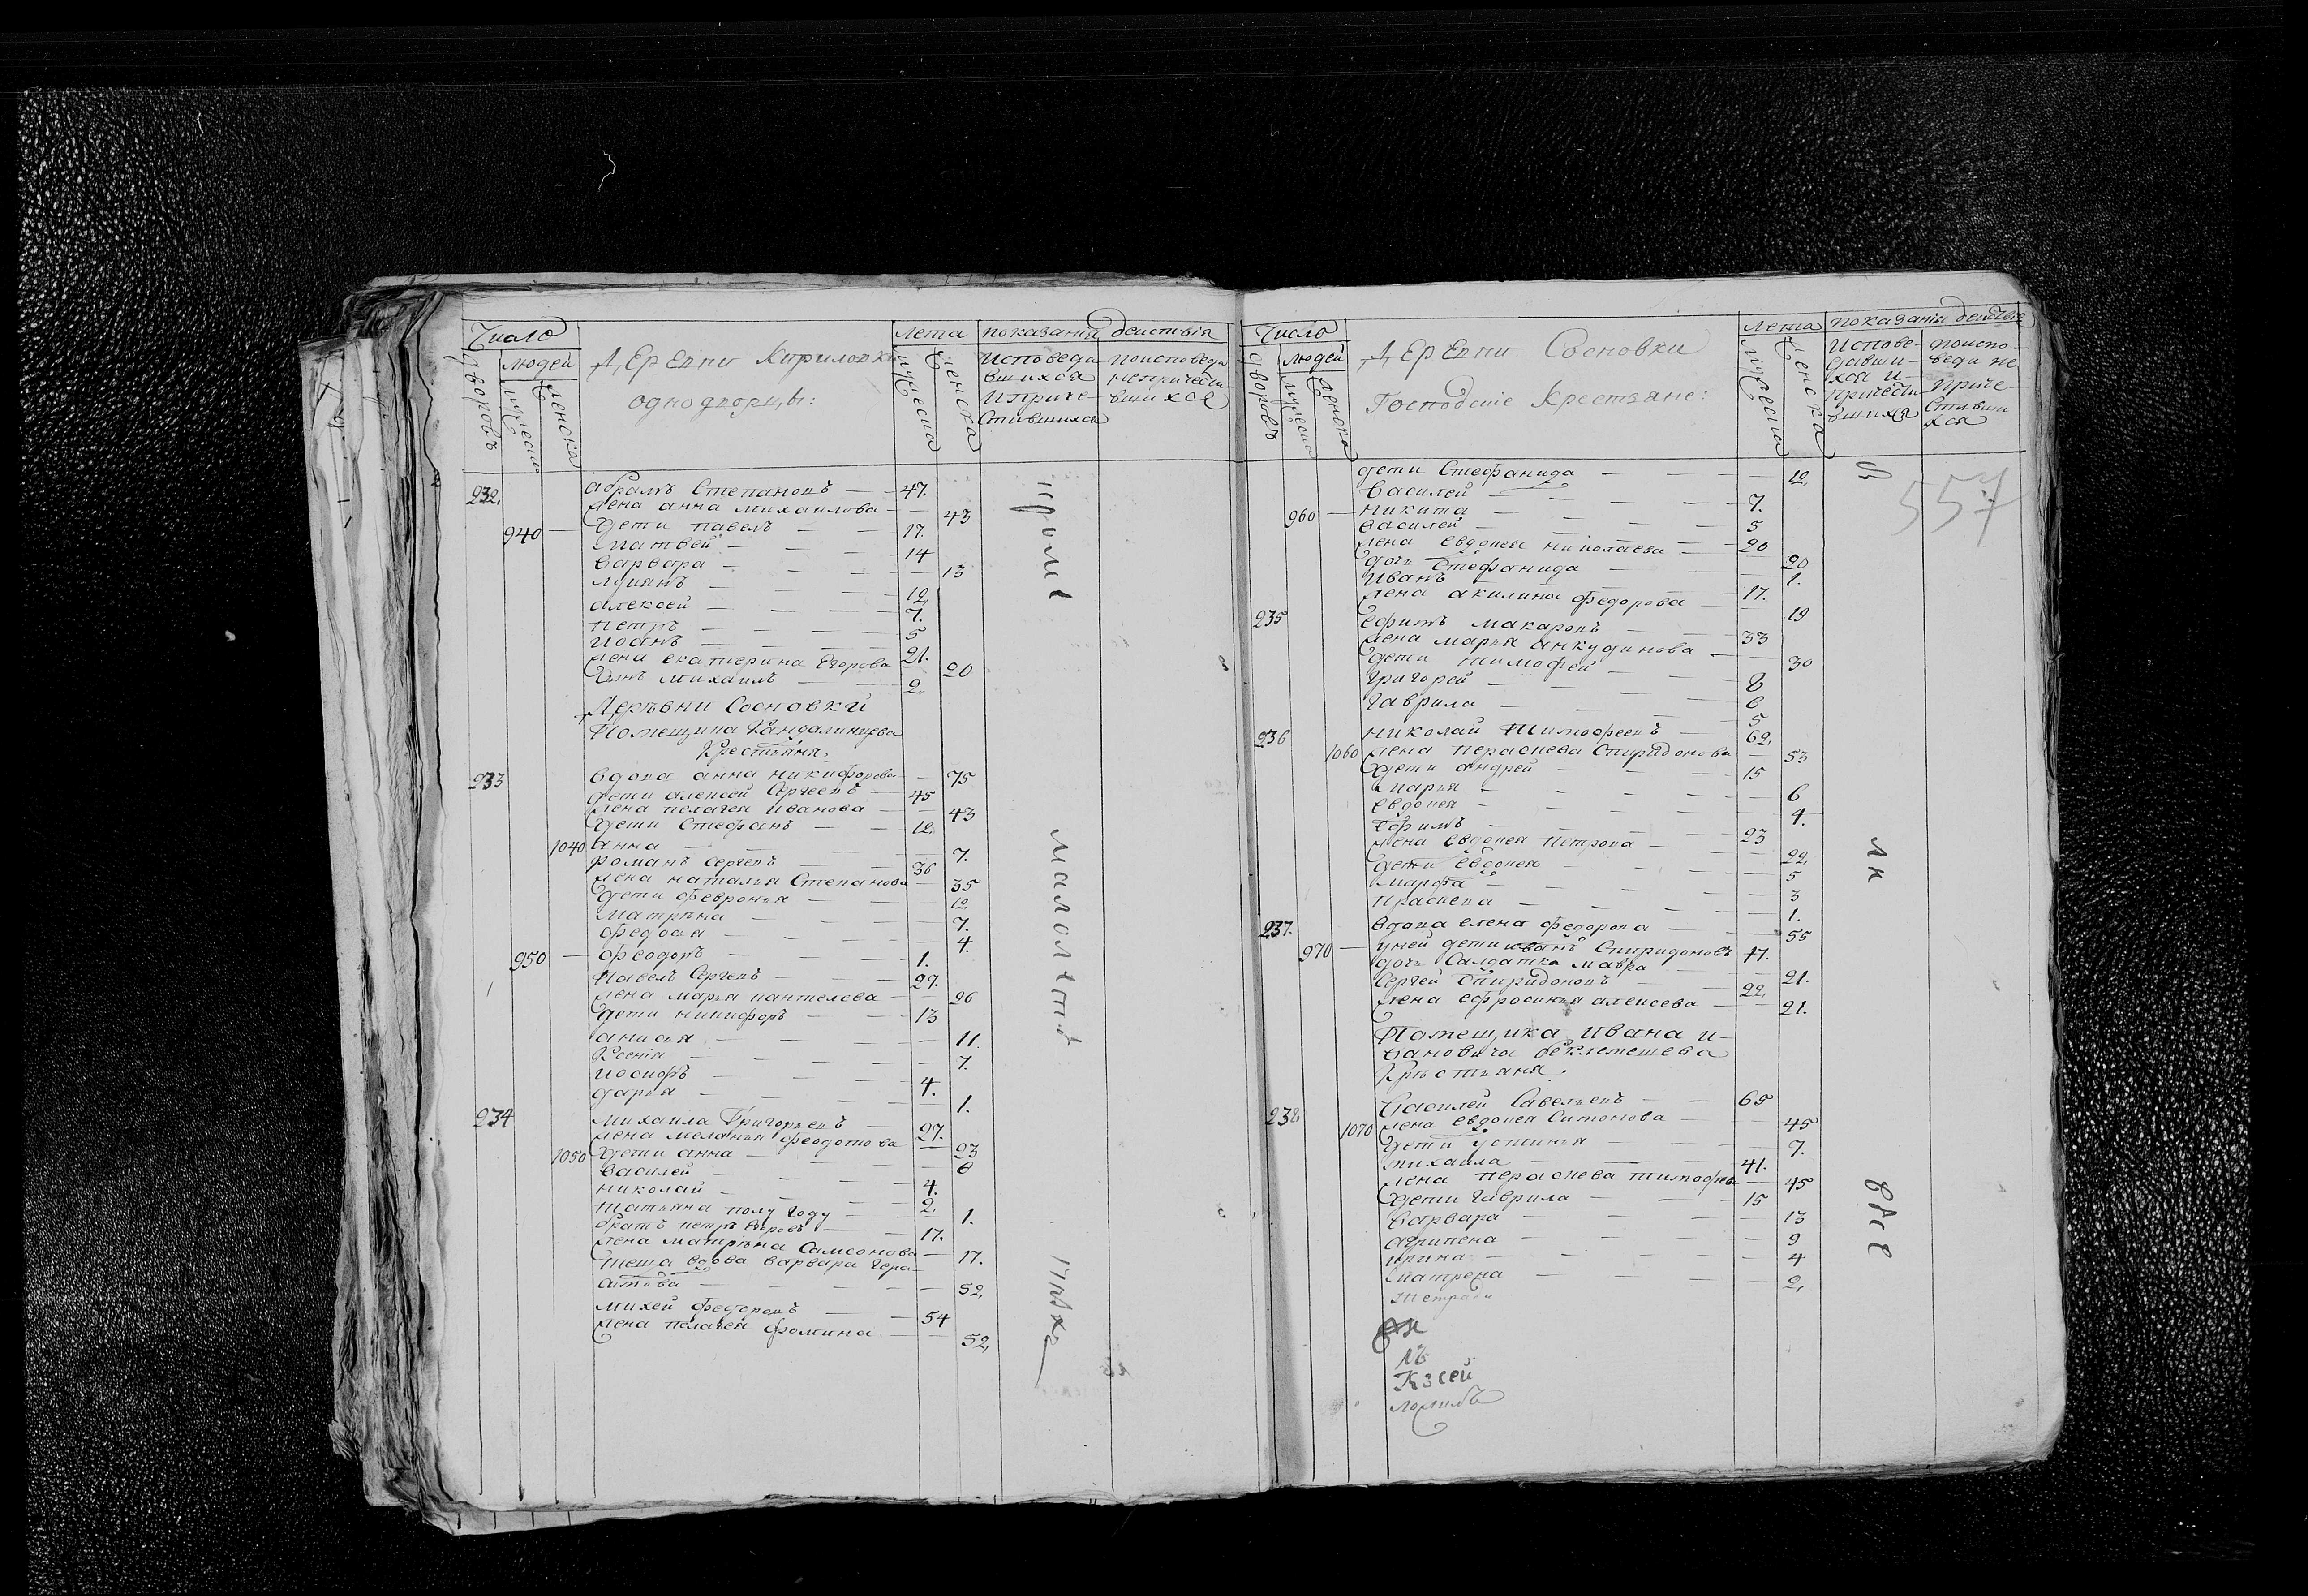 Число
людей
дворовъ
мужеска
женска
Деревни Кириловки
однодворцы:
лета
мужеска
женска
показании действия
исповеда
вшихся
и приче
стившихся
по исповеди
непричасти
вшихся
232. абрамъ Степановъ — 47.
жена анна михаилова — 43
940 — дети павелъ — 17.
матвей — 14
варвара — 13
лукиянъ — 12
алексей — 7.
петръ — 5
иоанъ — 21.
жена екатерина Егорова 20
сынъ михаилъ — 2
Деревни Сосновки
Помещика
Крестьяня
233 вдова анна никифорова — 75
дети алексей Сергеевъ — 45
жена пелагея иванова — 43
дети Стефанъ — 12.
1040 анна — 7.
романъ сергеевъ — 36
жена наталья Степанова — 35
дети февронья — 12
матрена — 7.
федосья — 4.
950 — феодоръ — 1.
павелъ Сергеевъ — 27.
жена марья пантелева — 26
дети никифоръ — 13
анисья — 11.
Ксения — 7.
иосифъ — 4.
дарья — 1.
234 михаила Григорьевъ — 27.
жена меланья феодотова — 23
1050 дети анна — 6
василей — 4.
николай — 2.
татьяна полу году — 1.
братъ петръ — 17.
жена матрена Самсонова — 17.
теща вдова варвара гера-
симова — 52,
михей федоровъ — 54
жена пелагея фомина — 52,
кроме
малолетныхъ
Число
людей
дворовъ
мужеска
женска
Деревни Сосновки
Господские Крестьяне:
лета
мужеска
женска
показания действие
испове-
давши-
хся и
причасти
вшихся
по испо-
веди не
приче-
стивши
хся
557
дети Стефанида — 12,
василей — 7.
960 — никита — 5
василей — 20
жена евдокея николаева — 20
дочь Стефанида — 1.
иванъ — 17.
жена акилина федорова — 19
235 ефимъ макаровъ — 33
жена марья анкудинова — 30
дети тимофей — 8
григорей — 6
гаврила — 5
236 николай тимофеевъ — 62,
1060 жена параскева Спиридонова 53
дети андрей — 15
марья — 6
евдокея — 4.
ефимъ — 23
жена евдокея петрова — 22,
дети евдокея — 5
марфа — 3
праскева — 1.
237. вдова елена федорова — 55
970 — у ней дети иванъ Спиридоновъ 17.
дочь Салдатка мавра — 21.
Сергей Спиридоновъ — 22,
жена ефросинья алексеева — 21.
Помещика ивана и-
вановича беклемешева
Крестьяня.
238 василей Савельевъ — 65
1070 жена евдокея Симонова — 45
дети устинья — 7.
михаила — 41.
жена параскева тимофеева 45
дети гаврила — 15
варвара — 13
агрипена — 9
ирина — 4
матрена — 2,
тетради
лъ
Кзсей
все